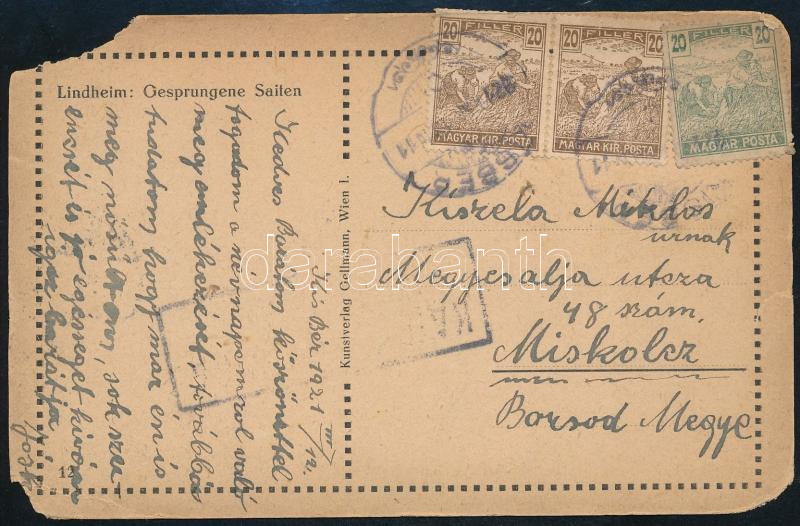 Lindheim: Gesprungene Saiten
Kis Bér 1921 III/12.
Kedves Barátom köszönettel
fogadom a névnapomról való
megemlékezését, továbbá
tudatom hogy már én is
meg nősültem, sok sze-
encsét és jó egésséget kíván
igaz barátja
Józsi
12
Kunstverlag Gellmann, Wien I.
20 FILLER 20
MAGYAR KIR. POSTA
20 FILLER 20
MAGYAR KIR. POSTA
20 FILLER 20
MAGYAR POSTA
KISBÉR
Kiszela Miklós
urnak
Megyesalja utcza
48 szám.
Miskolcz
Borsod Megye
darabanth